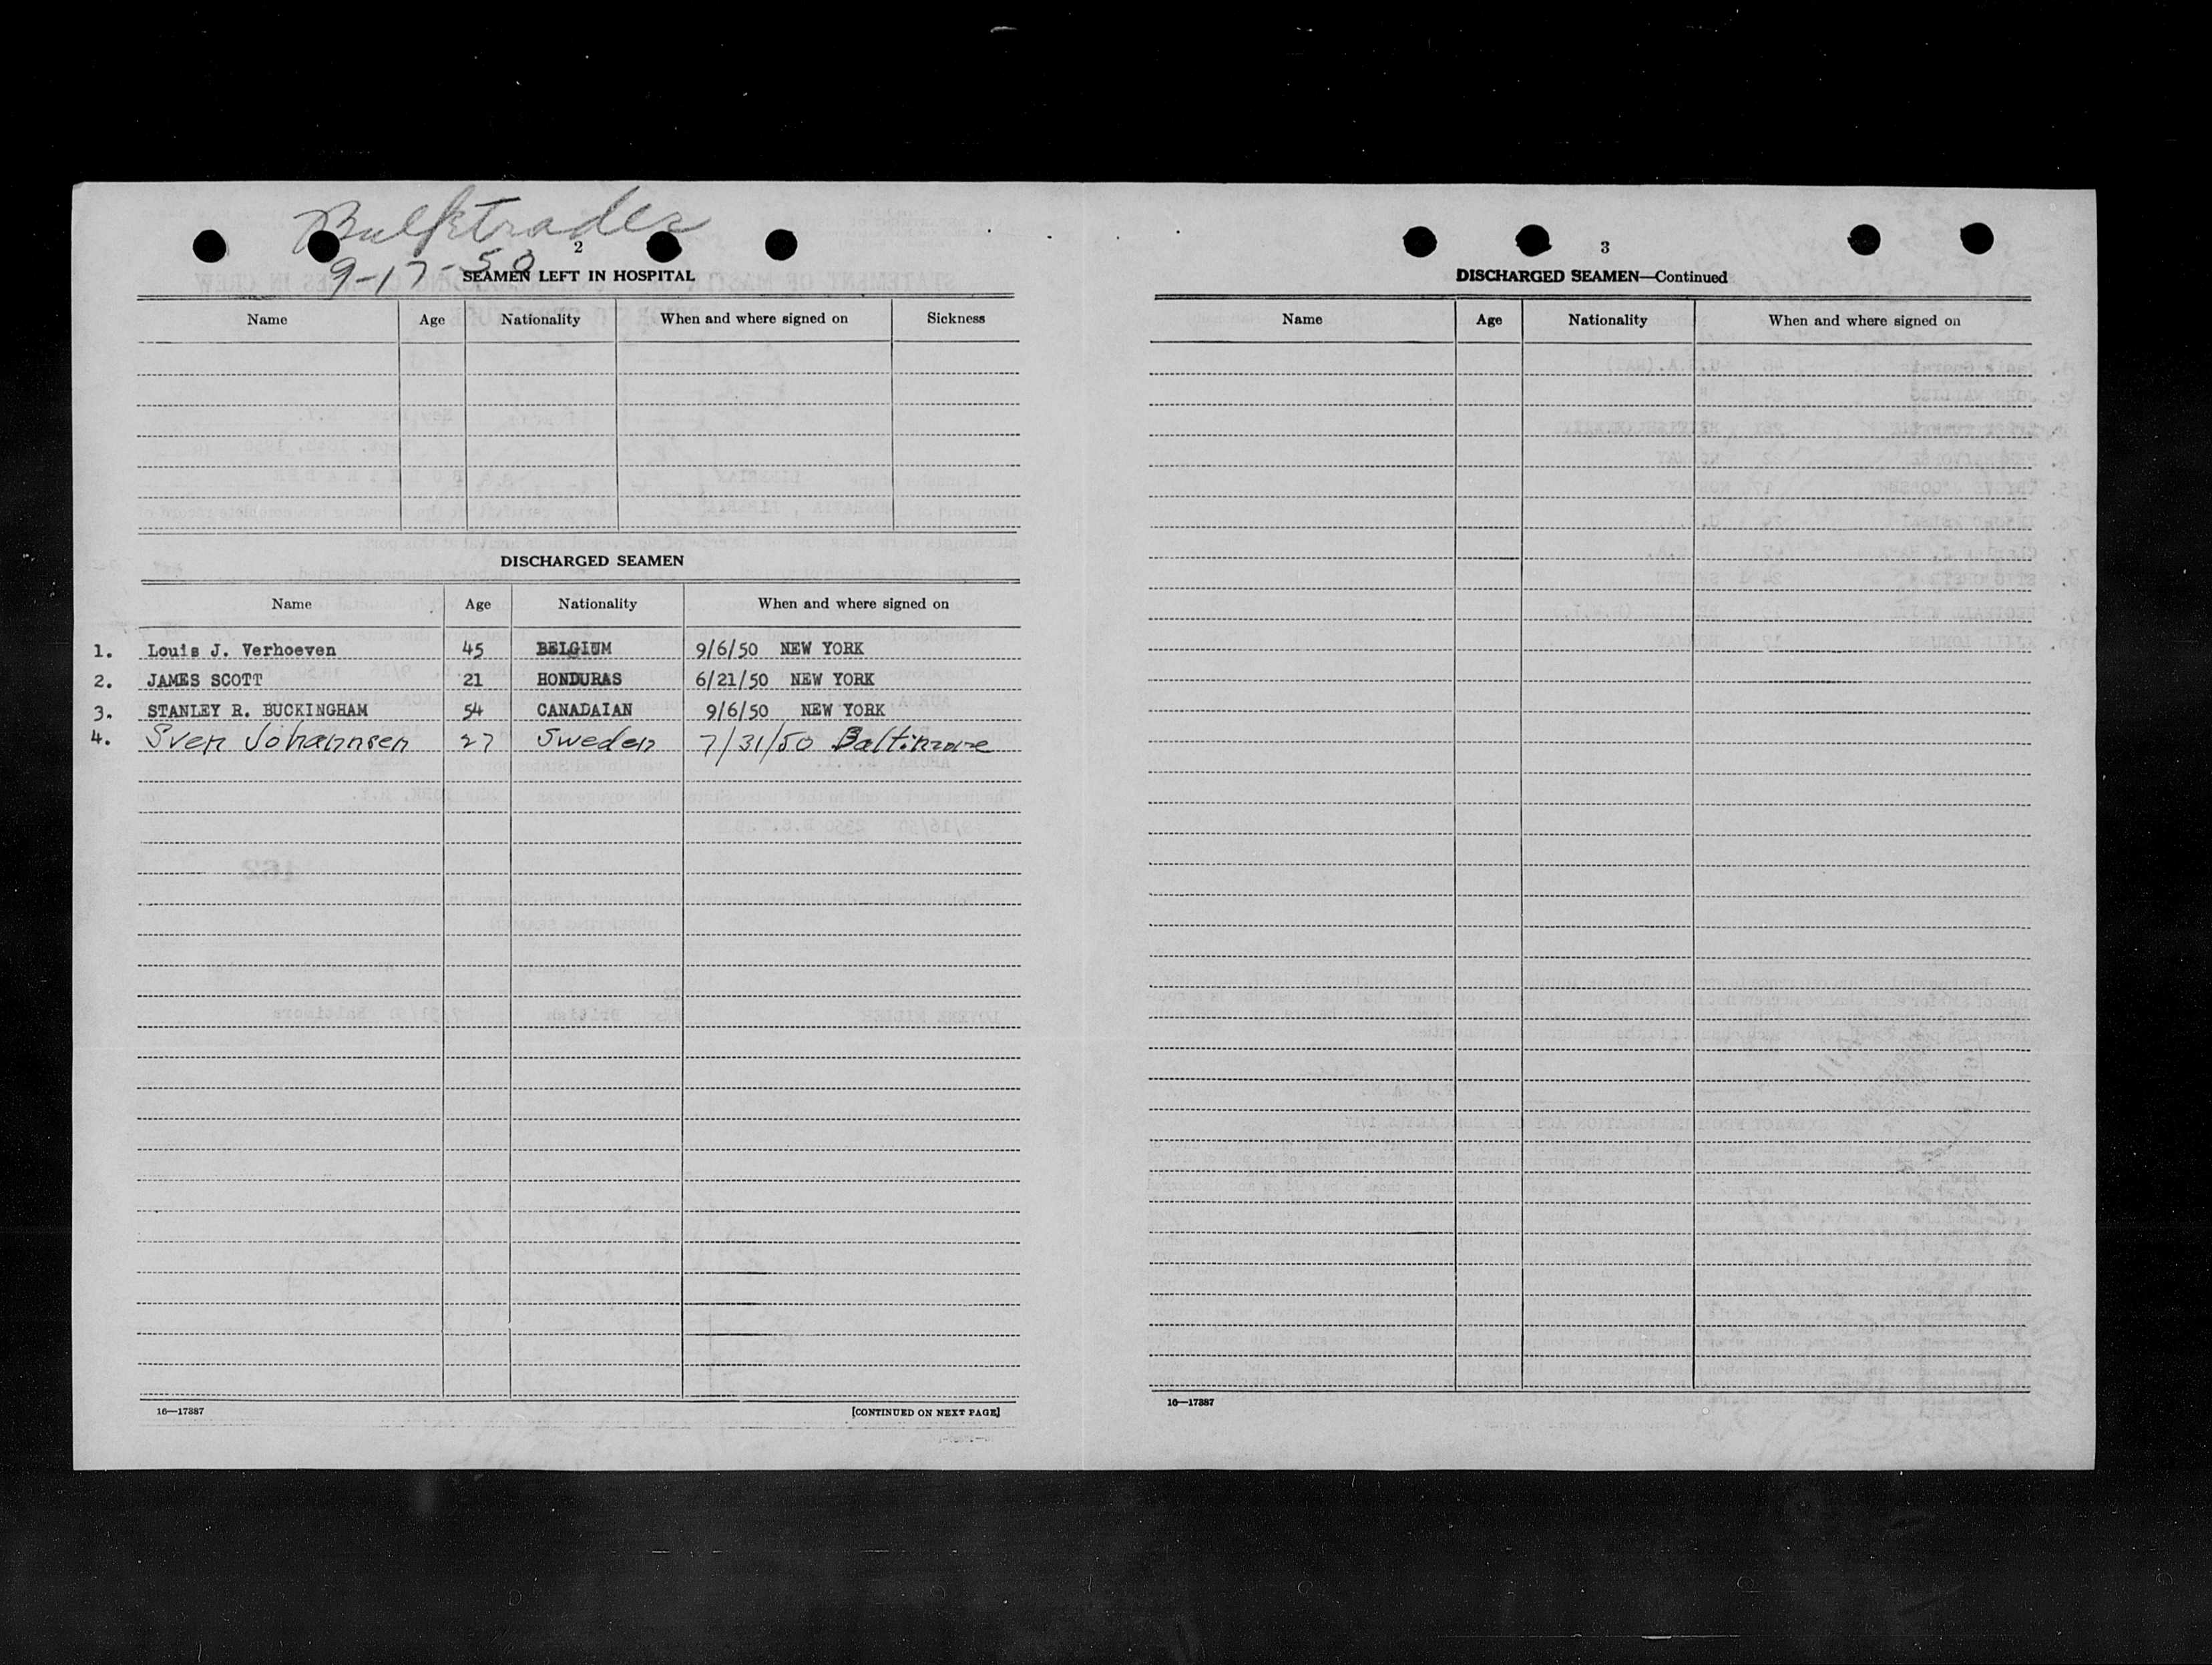 Bulktrader
2
9-17-50
SEAMEN LEFT IN HOSPITAL
Name Age Nationality When and where signed on Sickness
DISCHARGED SEAMEN
Name Age Nationality When and where signed on
1. Louis J. Verhoeven 45 BELGIUM 9/6/50 NEW YORK
2. JAMES SCOTT 21 HONDURAS 6/21/50 NEW YORK
3. STANLEY R. BUCKINGHAM 54 CANADAIAN 9/6/50 NEW YORK
4. Sven Johannsen 27 Sweden 7/31/50 Baltimore
16—17887 [CONTINUED ON NEXT PAGE]
3
DISCHARGED SEAMEN—Continued
Name Age Nationality When and where signed on
16—17887